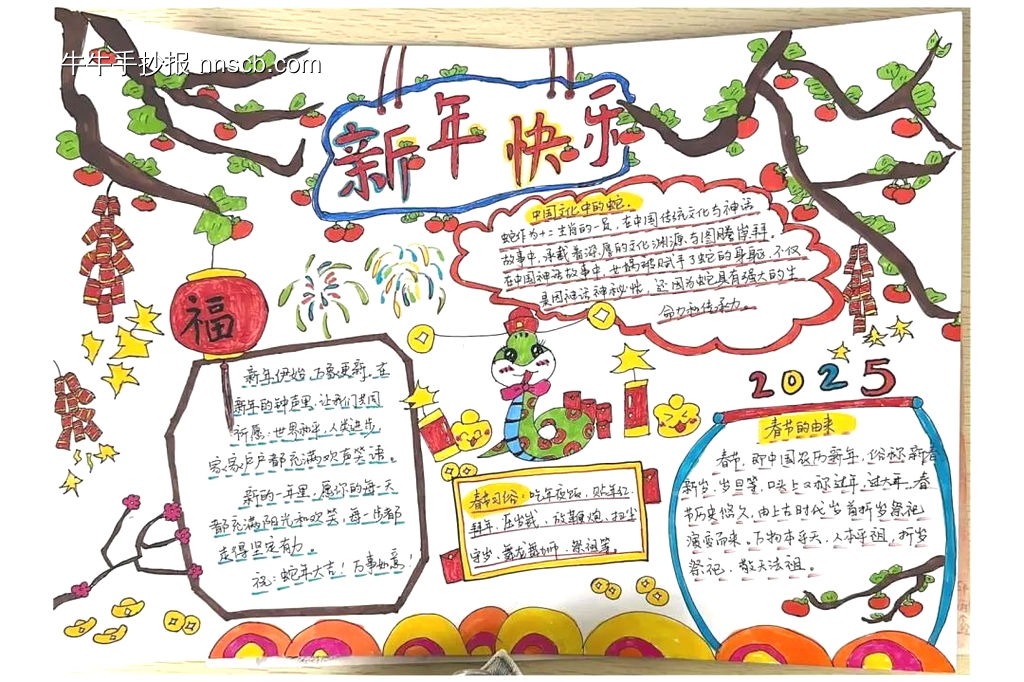 牛牛手抄报 nnscb.com
新年快乐
中国文化中的蛇.
蛇作为十二生肖的一员，在中国传统文化与神话
故事中，承载着深厚的文化渊源与图腾崇拜。
在中国神话故事中，女娲被赋予了蛇的身躯，不仅
是因神话神秘性，还因为蛇具有强大的生
命力和传承力。
福
新年伊始，万象更新。在
新年的钟声里，让我们共同
祈愿：世界和平，人类进步，
家家户户都充满欢声笑语。
新的一年里，愿你的每一天
都充满阳光和欢笑，每一步都
走得坚定有力。
祝：蛇年大吉！万事如意！
春节习俗：吃年夜饭，贴年红
拜年，压岁钱，放鞭炮，扫尘
守岁、舞龙舞狮、祭祖等。
2025
春节的由来
春节，即中国农历新年，俗称新春
新岁，岁旦等，口头上又称过年，过大年，春
节历史悠久，由上古时代岁首祈岁祭祀
演变而来。万物本乎天，人本乎祖，祈岁
祭祀，敬天法祖。